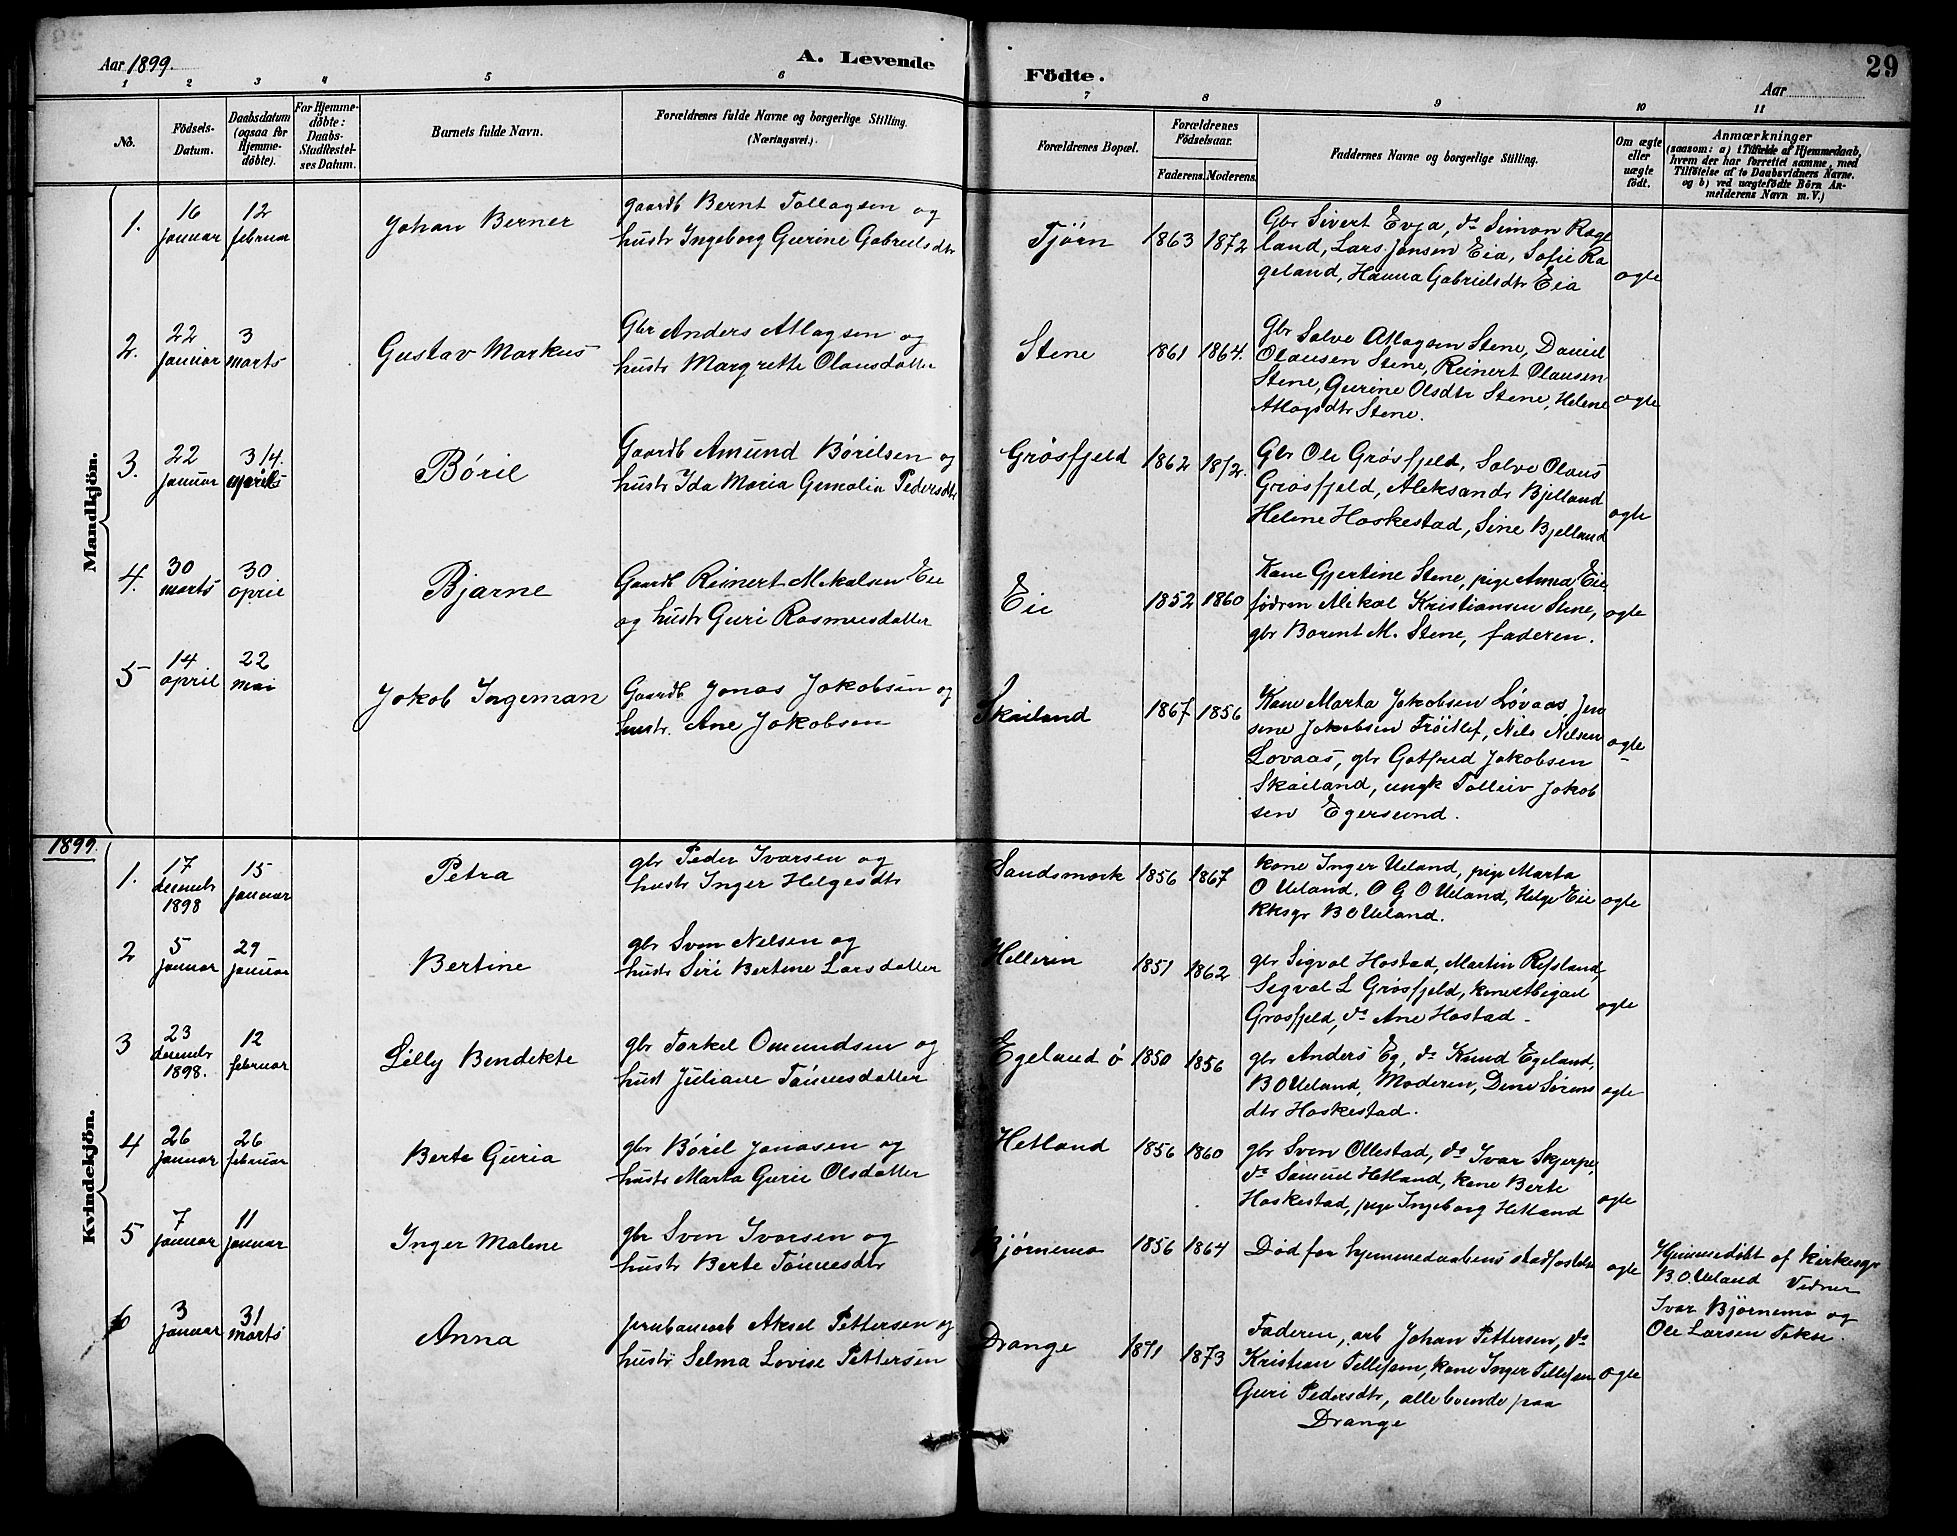 Aar 1899.
A. Levende
Födte.
29
Aar
1 2 3 4 5 6 7 8 9 10 11
No.
Födsels-
Datum.
Daabsdatum
(ogsaa for
Hjemme-
döbte).
For Hjemme-
döbte:
Daabs-
Stadfæstel-
ses Datum.
Barnets fulde Navn.
Forældrenes fulde Navne og borgerlige Stilling.
(Næringsvei.)
Forældrenes Bopæl.
Forældrenes
Födselsaar.
Faderens.
Moderens.
Faddernes Navne og borgerlige Stilling.
Om ægte
eller
uægte
født.
Anmærkninger
(saasom: a) i Tilfælde af Hjemmedaab,
hvem der har forrettet samme, med
Tilføielse af to Daabsvidners Navne.
og b) ved uægtefødte Börn An-
melderens Navn m. V.)
Mandkjön.
1.
16
januar
12
februar
Johan Berner
gaardb Bernt Tollagsen og
hustr Ingeborg Gurine Gabrielsdtr
Tjörn
1863
1872
Gbr Sivert Evja, ds Simon Rage
land, Lars Jonsen Eia, Sofie Ra
geland, Hanna Gabrielsdtr Eia
ægte
2.
22
januar
3
marts
Gustav Markus
Gbr Anders Atlagsen og
hustr Margrette Olausdatter
Stene
1861
1864.
Gbr Salve Atlagsen Stene, Daniel
Olausen Stene, Reinert Olausen
Stene, Gurine Olsdtr Stene, Helene
Atlagsdtr Stene.
ægte
3.
22
januar
3/4.
april
Böril
Gaardb Amund Börilsen og
hustr Ida Maria Gemalia Pedersdtr
Grösfjeld
1862
Gbr Ole Grösfjeld, Salve Olaus
Grösfjeld, Aleksandr Bjelland
Helene Haskestad, Sine Bjelland
ægte
4.
30
marts
30
april
Bjarne
Gaardb Reinert Mikalsen Eie
og hustr Guri Rasmusdatter
Eie
1852
1860
Kone Gjertine Stene, pige Anna Eie
födrm Mikal Kristiansen Stene,
gbr Barent M. Stene, faderen.
ægte
5
14
april
22
mai
Jakob Ingeman
Gaardb Jonas Jakobsen og
hustr. Ane Jakobsen
Skailand
1867
1856
Kone Marta Jakobsen Lövaas, Jen
sine Jakobsen Tröitlef, Nils Nilsen
Lovaas, gbr Gotfred Jakobsen
Skailand, ungk Tolleiv Jakob
sen Egersund.
ægte
1899.
Kvindekjön.
1.
17
decembr
1898
15
januar
Petra
gbr Peder Ivarsen og
hustr Inger Helgesdtr
Sandsmark
1856
1867
kone Inger Ueland, pige Marta
O Ueland. O G O Ueland, Helge Eie
kksgr B O Ueland.
ægte
2
5
januar
29
januar
Bertine
gbr Sven Nilsen og
hustr Siri Bertine Larsdatter
Helleren
1851
1862
gbr Sigval Hastad, Martin Refsland,
Segval L Grösfjeld, kone Abigael
Grosfjeld, ds Ane Hastad -
ægte
3
23
decembr
1898.
12
februar
Lilly Bendikte
gbr Torkel Omundsen og
hust Juliane Tönnesdatter
Egeland ö
1850
1856
gbr Anders Eg, ds Knud Egeland,
B O Ueland, Moderen, Dine Sörens
dtr Haskestad.
ægte
4
26
januar
26
februar
Berte Guria
gbr Böril Jonasen og
hustr Marta Gurie Olsdatter
Hetland
1856
1860
gbr Sven Ollestad, ds Ivar Skjerpe,
ds Samuel Hetland, kone Berte
Haskestad, pige Ingeborg Hetland
ægte
5
7
januar
11
januar
Inger Malene
gbr Sven Ivarsen og
hustr Berte Tönnesdtr
Bjørnemo
1856
1864
Död for hjemmedaabens stadfæstelse
ægte
Hjemmedöbt af Kirkesgr
B.O. Ueland Vidner
Ivar Björnemo og
Ole Larsen Tekse.
6
3
januar
31
marts
Anna
jernbanearb Aksel Pettersen og
hustr Selma Lovise Pettersen
Drange
1871
1873
Faderen, arb Johan Pettersen, ds
Kristian Tellefsen, kone Inger Tellefsen
Guri Pedersdtr, alle boende paa
Drange
ægte